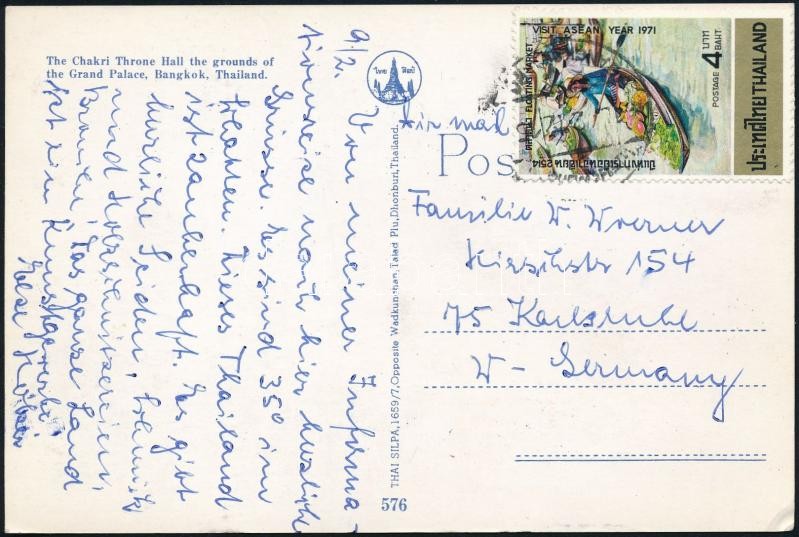 The Chakri Throne Hall the grounds of
the Grand Palace, Bangkok, Thailand.
9/2.
Von meiner Informa-
tionsreise nach hier herzliche
Grüsse. Es sind 35° im
Schatten. Dieses Thailand
ist zauberhaft. Es gibt
herrliche Seiden, 
und Holzschnitzereien,
Bronzen, das ganze Land
ist ein Kunstgewerbe.
ไทย ศิลป์
THAI SILPA,1659/7,Opposite Wadkunchan,Talad Plu,Dhonburi,Thailand.
576
Air mail
Pos
VISIT ASEAN YEAR 1971
FLOATING MARKET
ปีแห่งการเยือนอาเซียน 2514
POSTAGE 4 บาท BAHT
ประเทศไทย THAILAND
Familie W. Woerner
Kirschstr 154
75 Karlsruhe
W-Germany